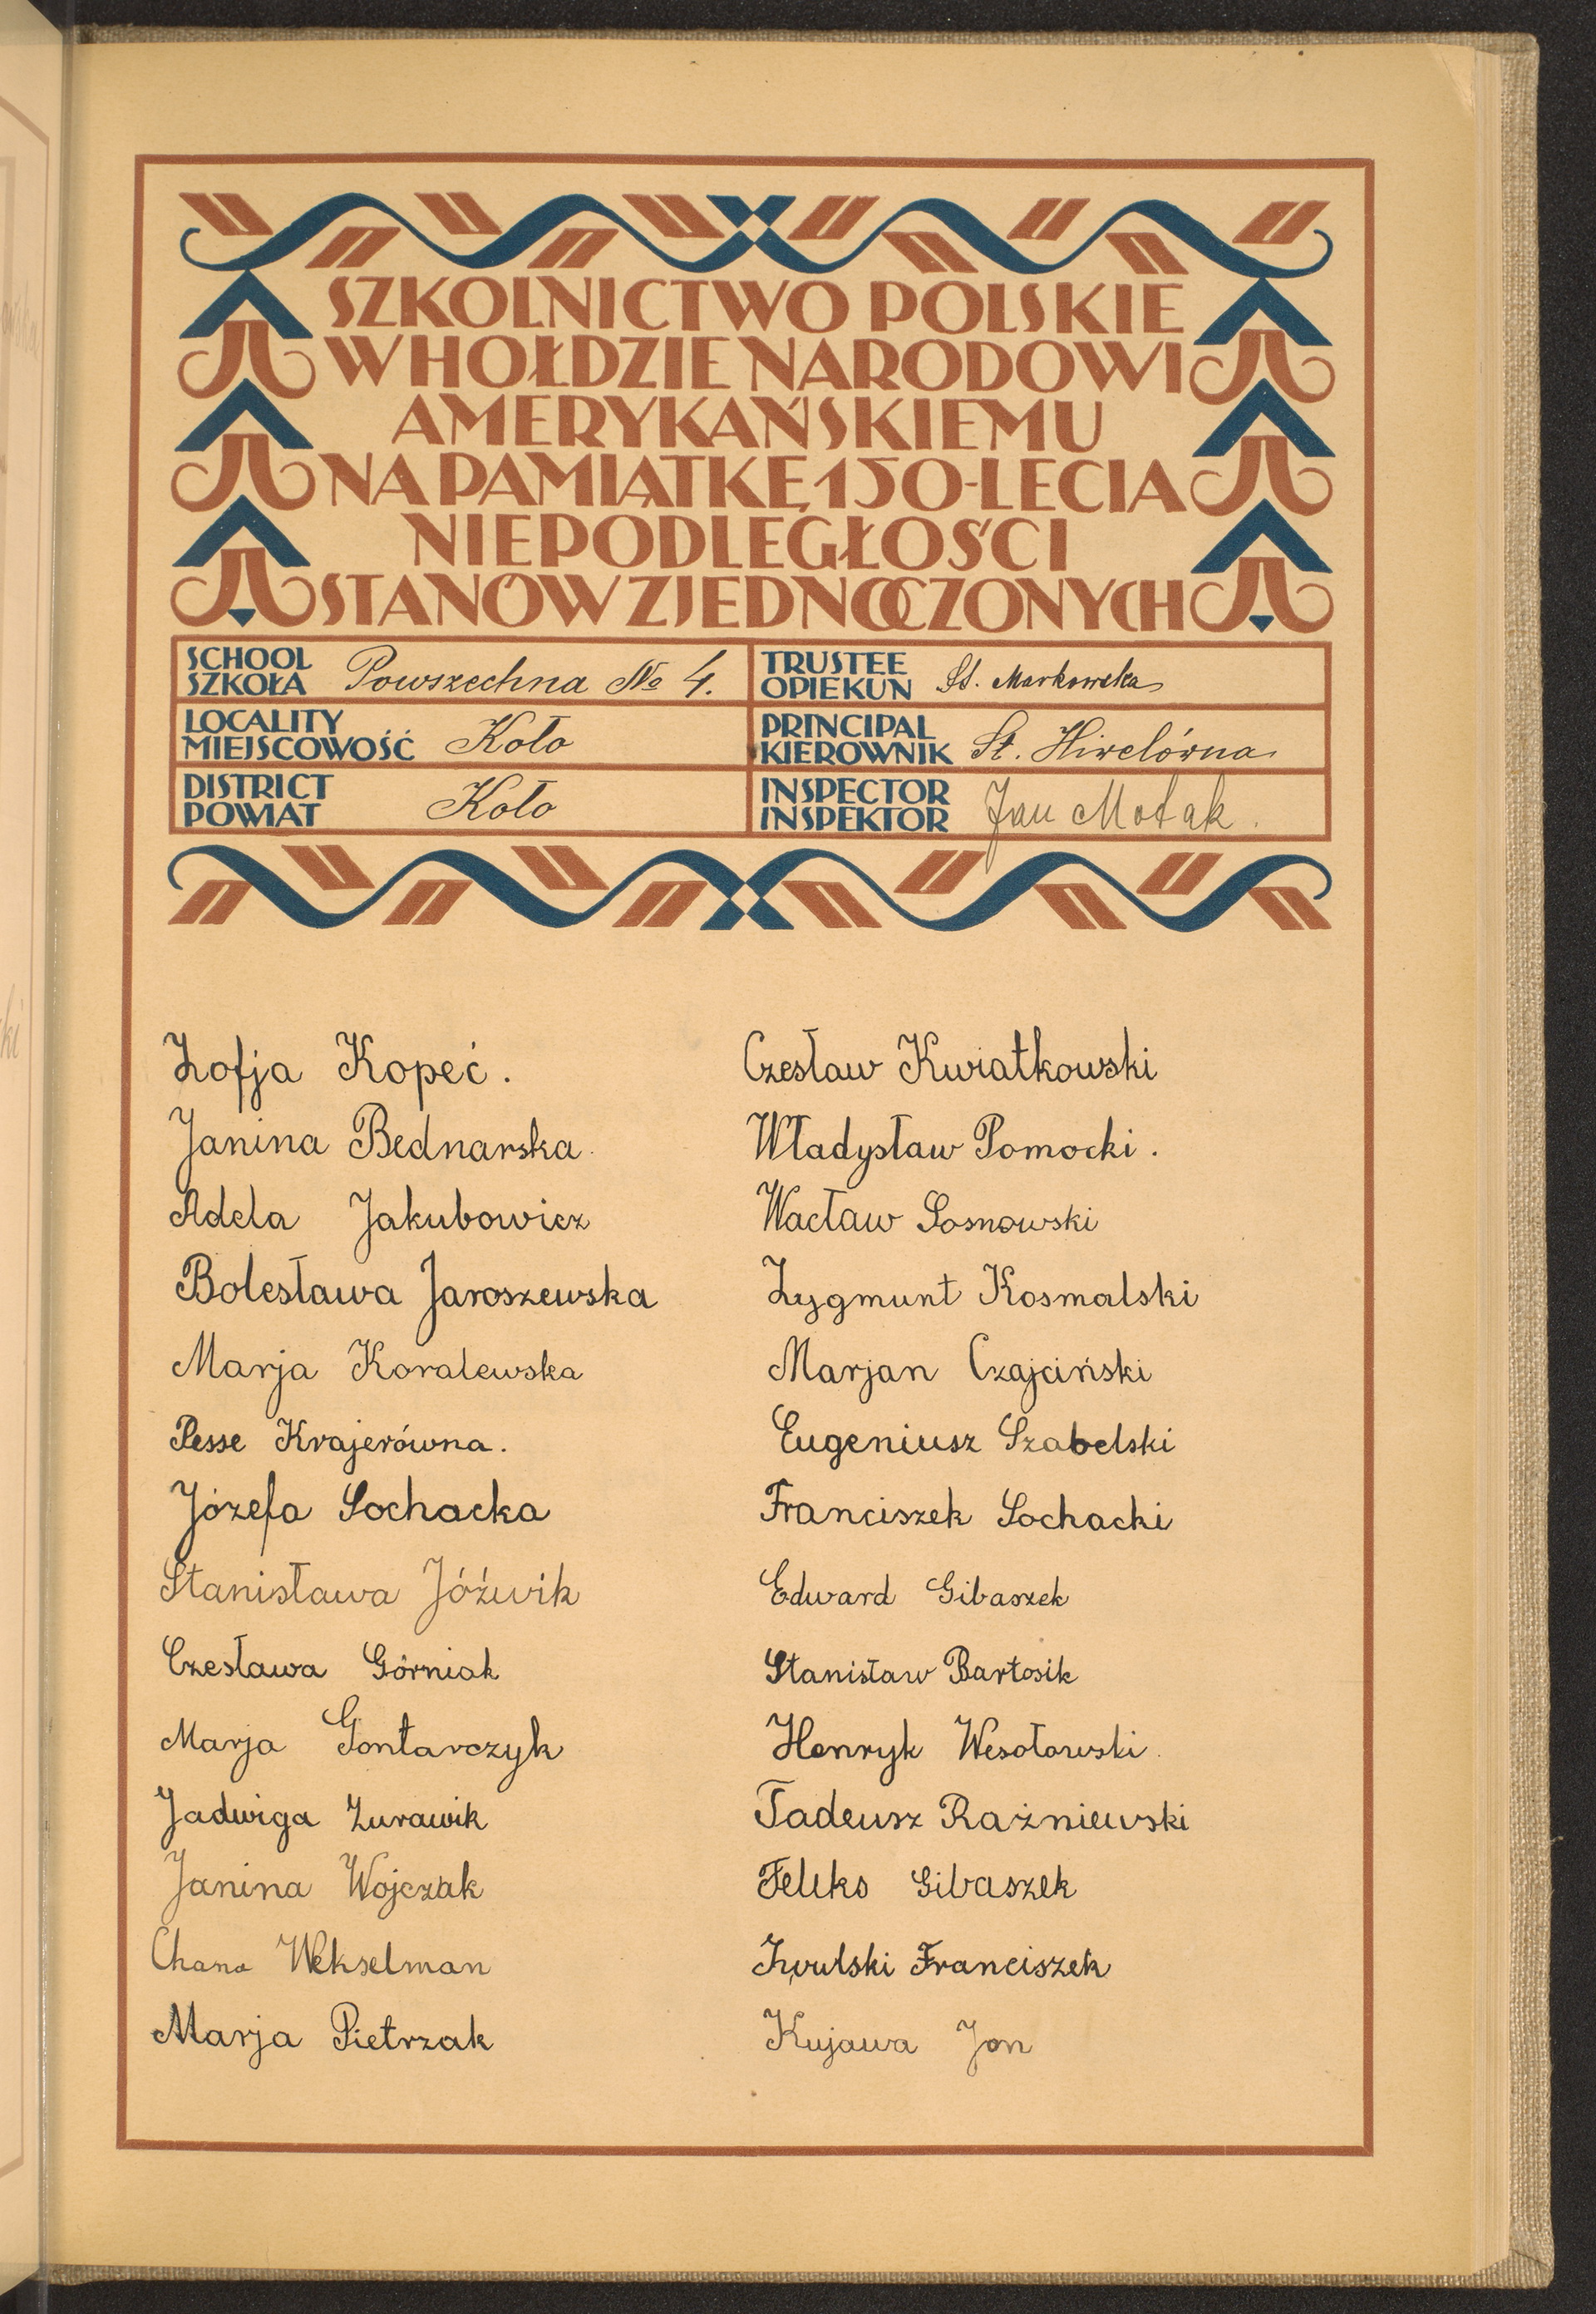 SZKOLNICTWO POLSKIE
W HOŁDZIE NARODOWI
AMERYKAŃSKIEMU
NA PAMIĄTKĘ 150-LECIA
NIEPODLEGŁOŚCI
STANÓW ZJEDNOCZONYCH
SCHOOL
SZKOŁA Powszechna № 4.
TRUSTEE
OPIEKUN St. Markowska
LOCALITY
MIEJSCOWOŚĆ Koło
PRINCIPAL
KIEROWNIK St. Hirelówna
DISTRICT
POWIAT Koło
INSPECTOR
INSPEKTOR Jan Motak.
Zofja Kopeć.
Janina Bednarska.
Adela Jakubowicz
Bolesława Jaroszewska
Marja Koralewska
Pesse Krajerówna.
Józefa Sochacka
Stanisława Jóźwik
Czesława Górniak
Marja Gontarczyk
Jadwiga Żurawik
Janina Wojczak
Chana Wekselman
Marja Pietrzak
Czesław Kwiatkowski
Władysław Pomocki.
Wacław Sosnowski
Zygmunt Kosmalski
Marjan Czajciński
Eugeniusz Szabelski
Franciszek Sochacki
Edward Gibaszek
Stanisław Bartosik
Henryk Wesołowski.
Tadeusz Rażniewski
Feliks Gibaszek
Franciszek
Kujawa Jan